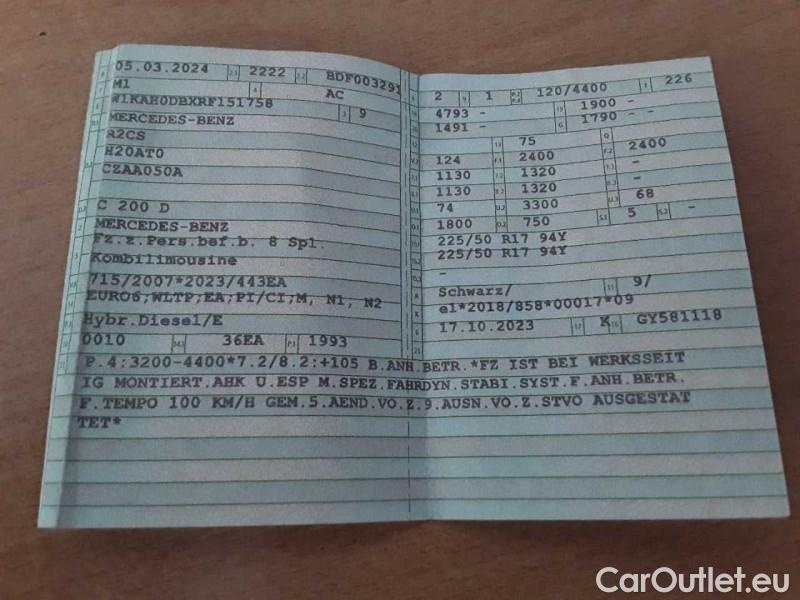 05.03.2024 2.1 2222 2.2 BDF003291
M1 4 AC
W1KAH0DBXRF151758 3 9
MERCEDES-BENZ
R2CS
H20AT0
CZAA050A
C 200 D
MERCEDES-BENZ
Fz.z.Pers.bef.b. 8 Spl.
Kombilimousine
715/2007*2023/443EA
EURO6;WLTP;EA;PI/CI;M, N1, N2
Hybr.Diesel/E
0010 14.1 36EA P.1 1993
2 9 1 P.2 P.4 120/4400 T 226
4793 - 19 1900 -
1491 - G 1790 --
12 - 13 75 Q -
V.7 124 F.1 2400 F.2 2400
1130 1320 -
1130 1320 -
74 U.2 3300 U.3 68
1800 O.2 750 S.1 5 S.2 -
225/50 R17 94Y
225/50 R17 94Y
-
Schwarz/ 11 9/
e1*2018/858*00017*09
17.10.2023 17 K 16 GY581118
P.4:3200-4400*7.2/8.2:+105 B.ANH.BETR.*FZ IST BEI WERKSSEIT
IG MONTIERT.AHK U.ESP M.SPEZ.FAHRDYN.STABI.SYST.F.ANH.BETR.
F.TEMPO 100 KM/H GEM.5.AEND.VO.Z.9.AUSN.VO.Z.STVO AUSGESTAT
TET*
CarOutlet.eu